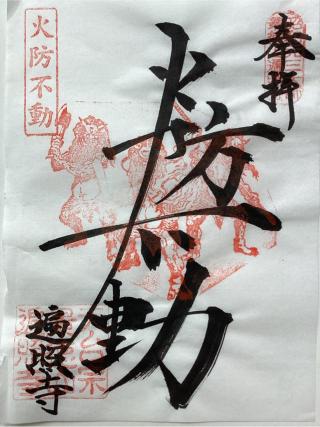 奉拝
火防不動
火防不動
遍照寺